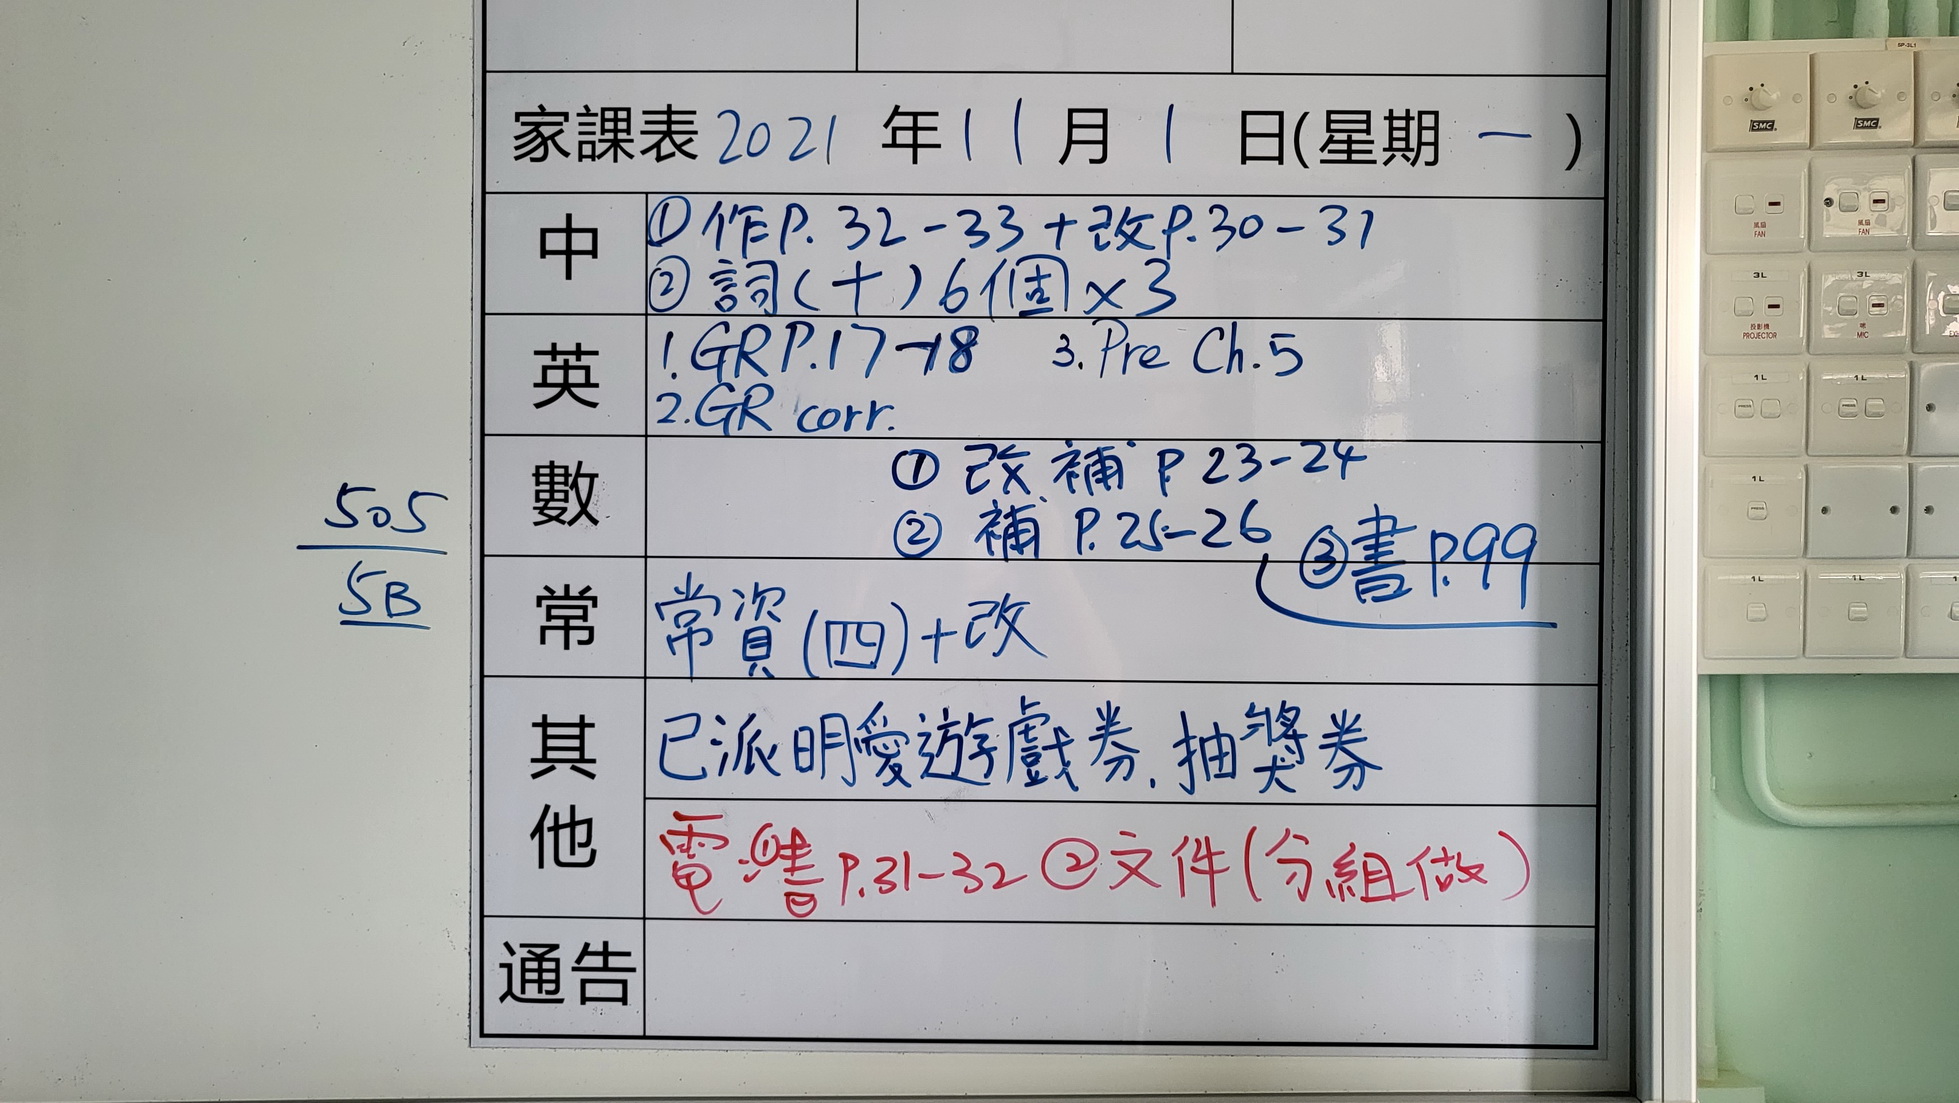 家課表 2021 年 11 月 1 日(星期 一 )
中
① 作P. 32-33 + 改P.30-31
② 詞(十) 6個×3
英
1. GR P.17-18 3. Pre Ch.5
2. GR corr.
數
① 改 補 P 23-24
② 補 P. 25-26 ③書P.99
常
常資(四)+改
其他
已派明愛遊戲券, 抽獎券
電 ①書 P.31-32 ②文件(分組做)
通告
505
5B
SP-3L1
SMC
SMC
風扇
FAN
風扇
FAN
3L
3L
投影機
PROJECTOR
咪
MIC
1L
1L
PRESS
PRESS
1L
PRESS
1L
1L